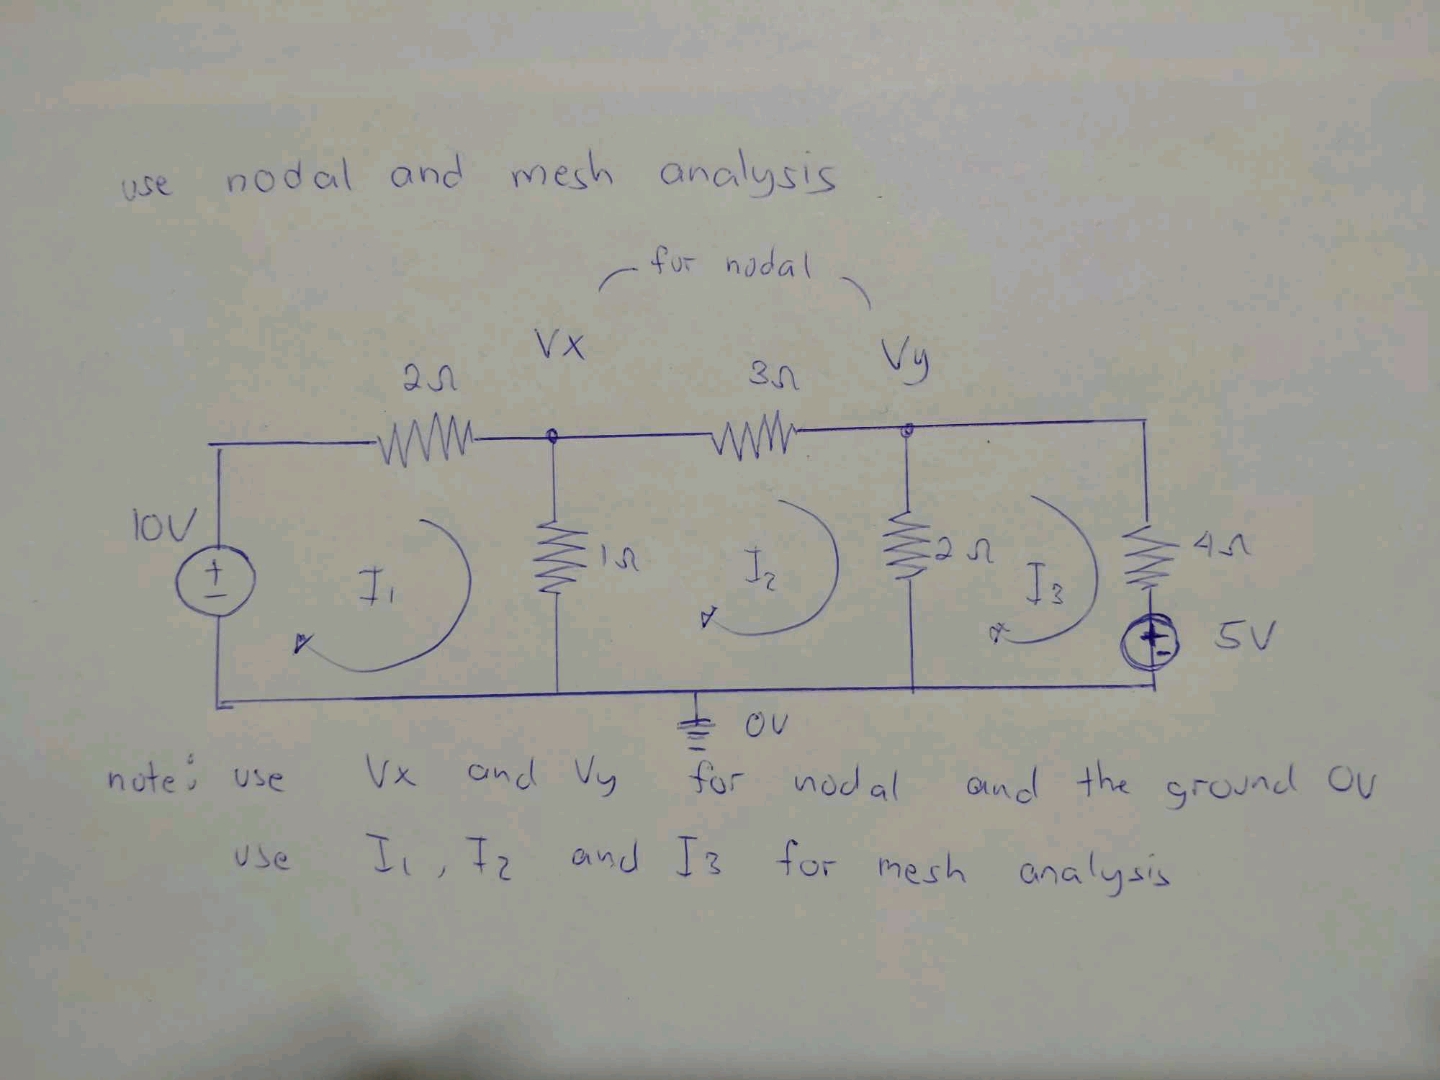 use nodal and mesh analysis
for nodal
Vx
Vy
2Ω
3Ω
10V
+
-
I1
1Ω
I2
2Ω
I3
4Ω
+
-
5V
0V
note: use Vx and Vy for nodal and the ground 0V
use I1, I2 and I3 for mesh analysis